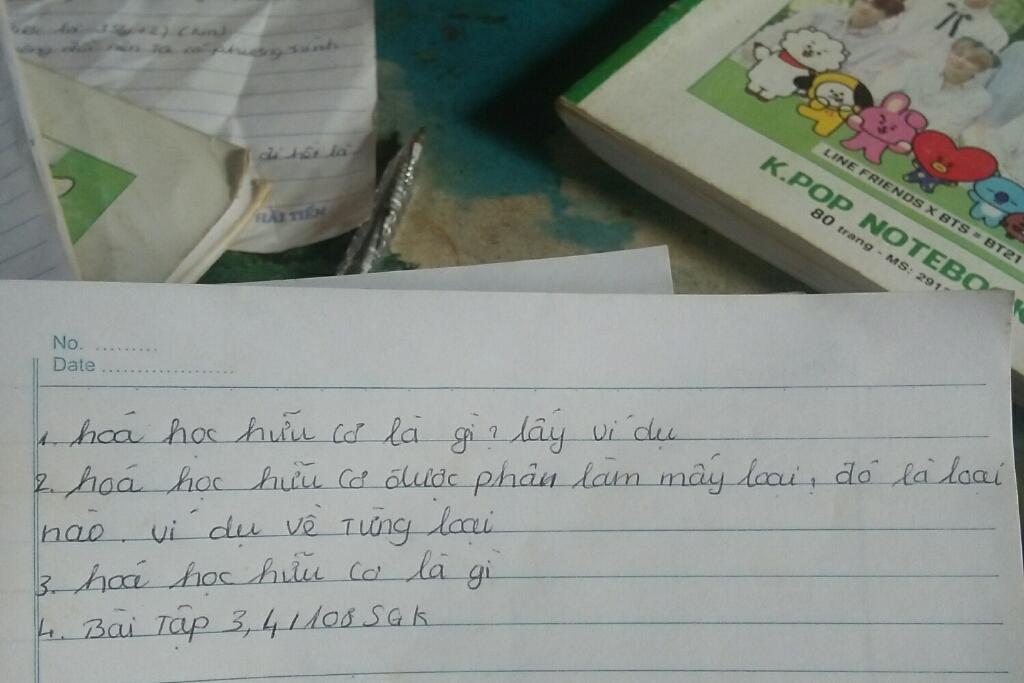 đi hết là
HẢI TIẾN
LINE FRIENDS X BTS = BT21
K.POP NOTEBOOK
80 trang - MS: 291
No. .........
Date ...................
1. hoá học hữu cơ là gì? lấy ví dụ
2. hoá học hữu cơ được phân làm mấy loại, đó là loại
nào. ví dụ về từng loại
3. hoá học hữu cơ là gì
4. Bài Tập 3,4/108 SGK